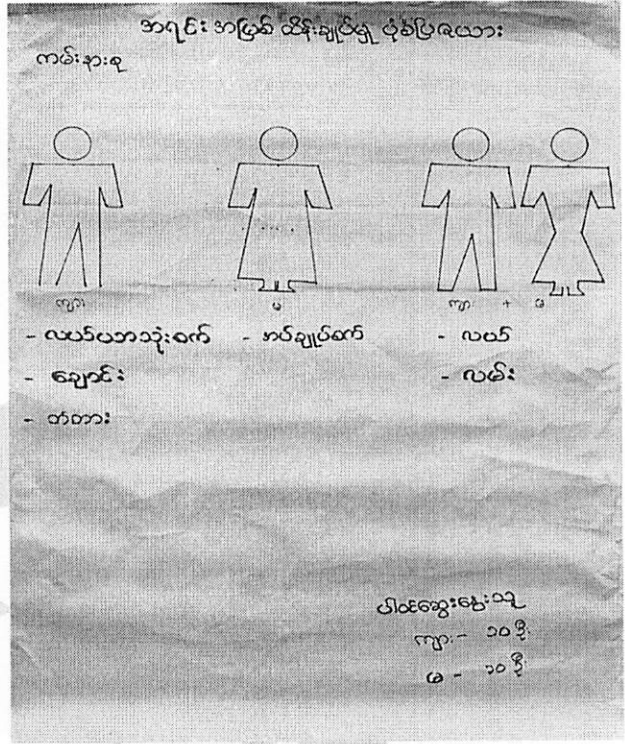 အရင်းအမြစ် ထိန်းချုပ်မှု ပုံစံပြဇယား
ကမ်းနားစု
ကျား မ ကျား + မ
- လယ်ယာသုံးစက် - အပ်ချုပ်စက် - လယ်
- ချောင်း - လမ်း
- တံတား
ပါဝင်ဆွေးနွေးသူ
ကျား - ၁၀ ဦး
မ - ၁၀ ဦး